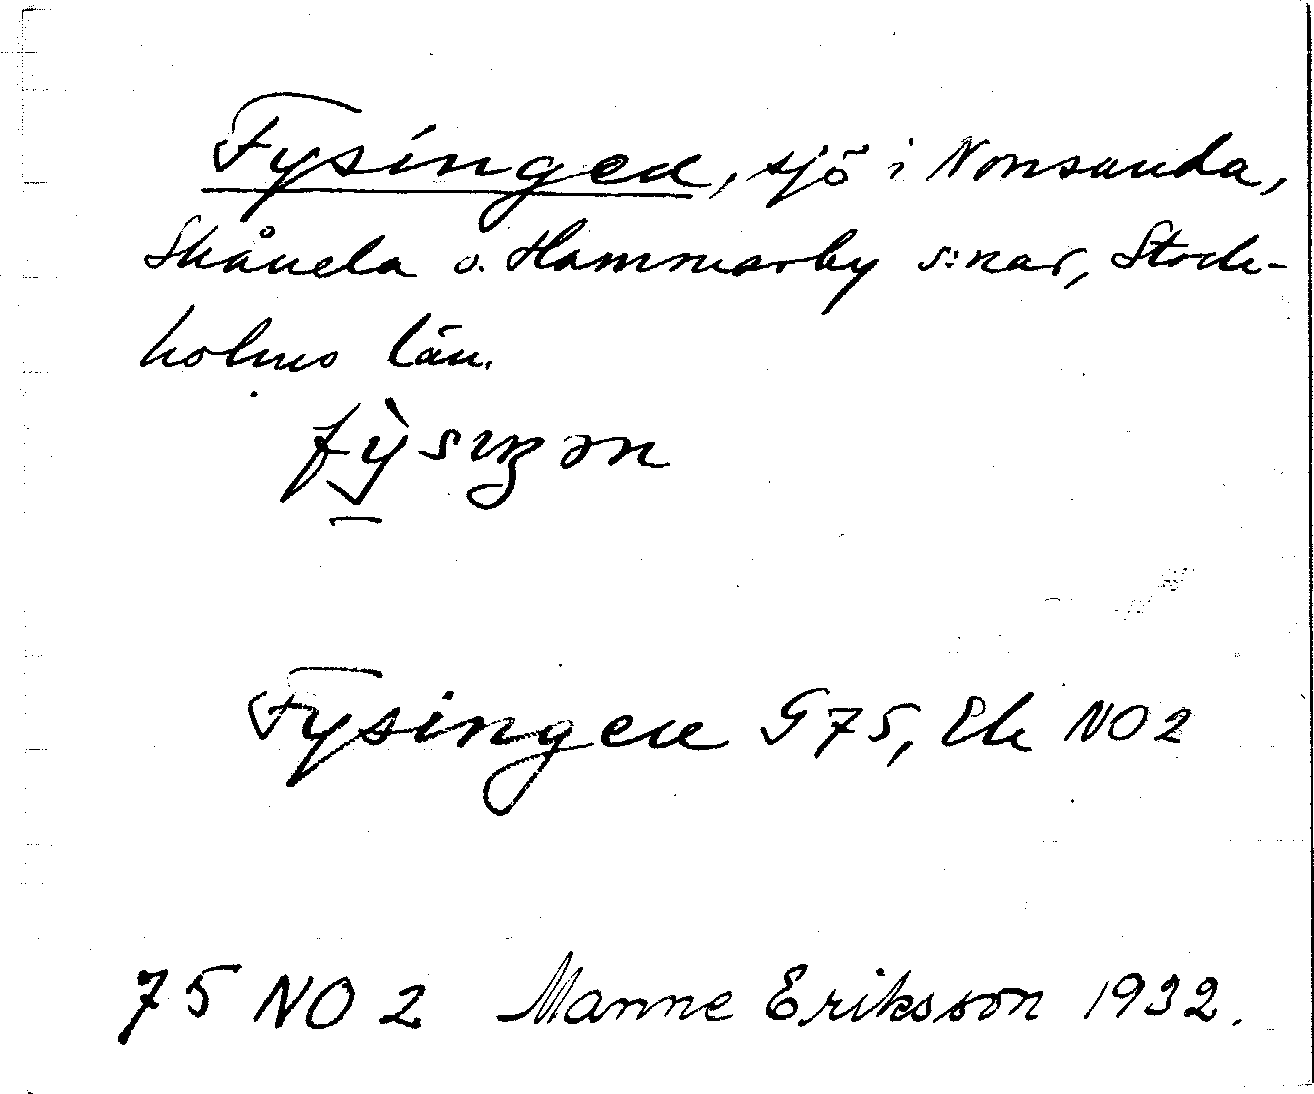 Fysingen, sjö i Norrsunda,
Skånela o. Hammarby s:nar, Stock-
holms län.
fỳsiŋən
Fysingen G75, Ek NO2
75 NO 2 Manne Eriksson 1932.